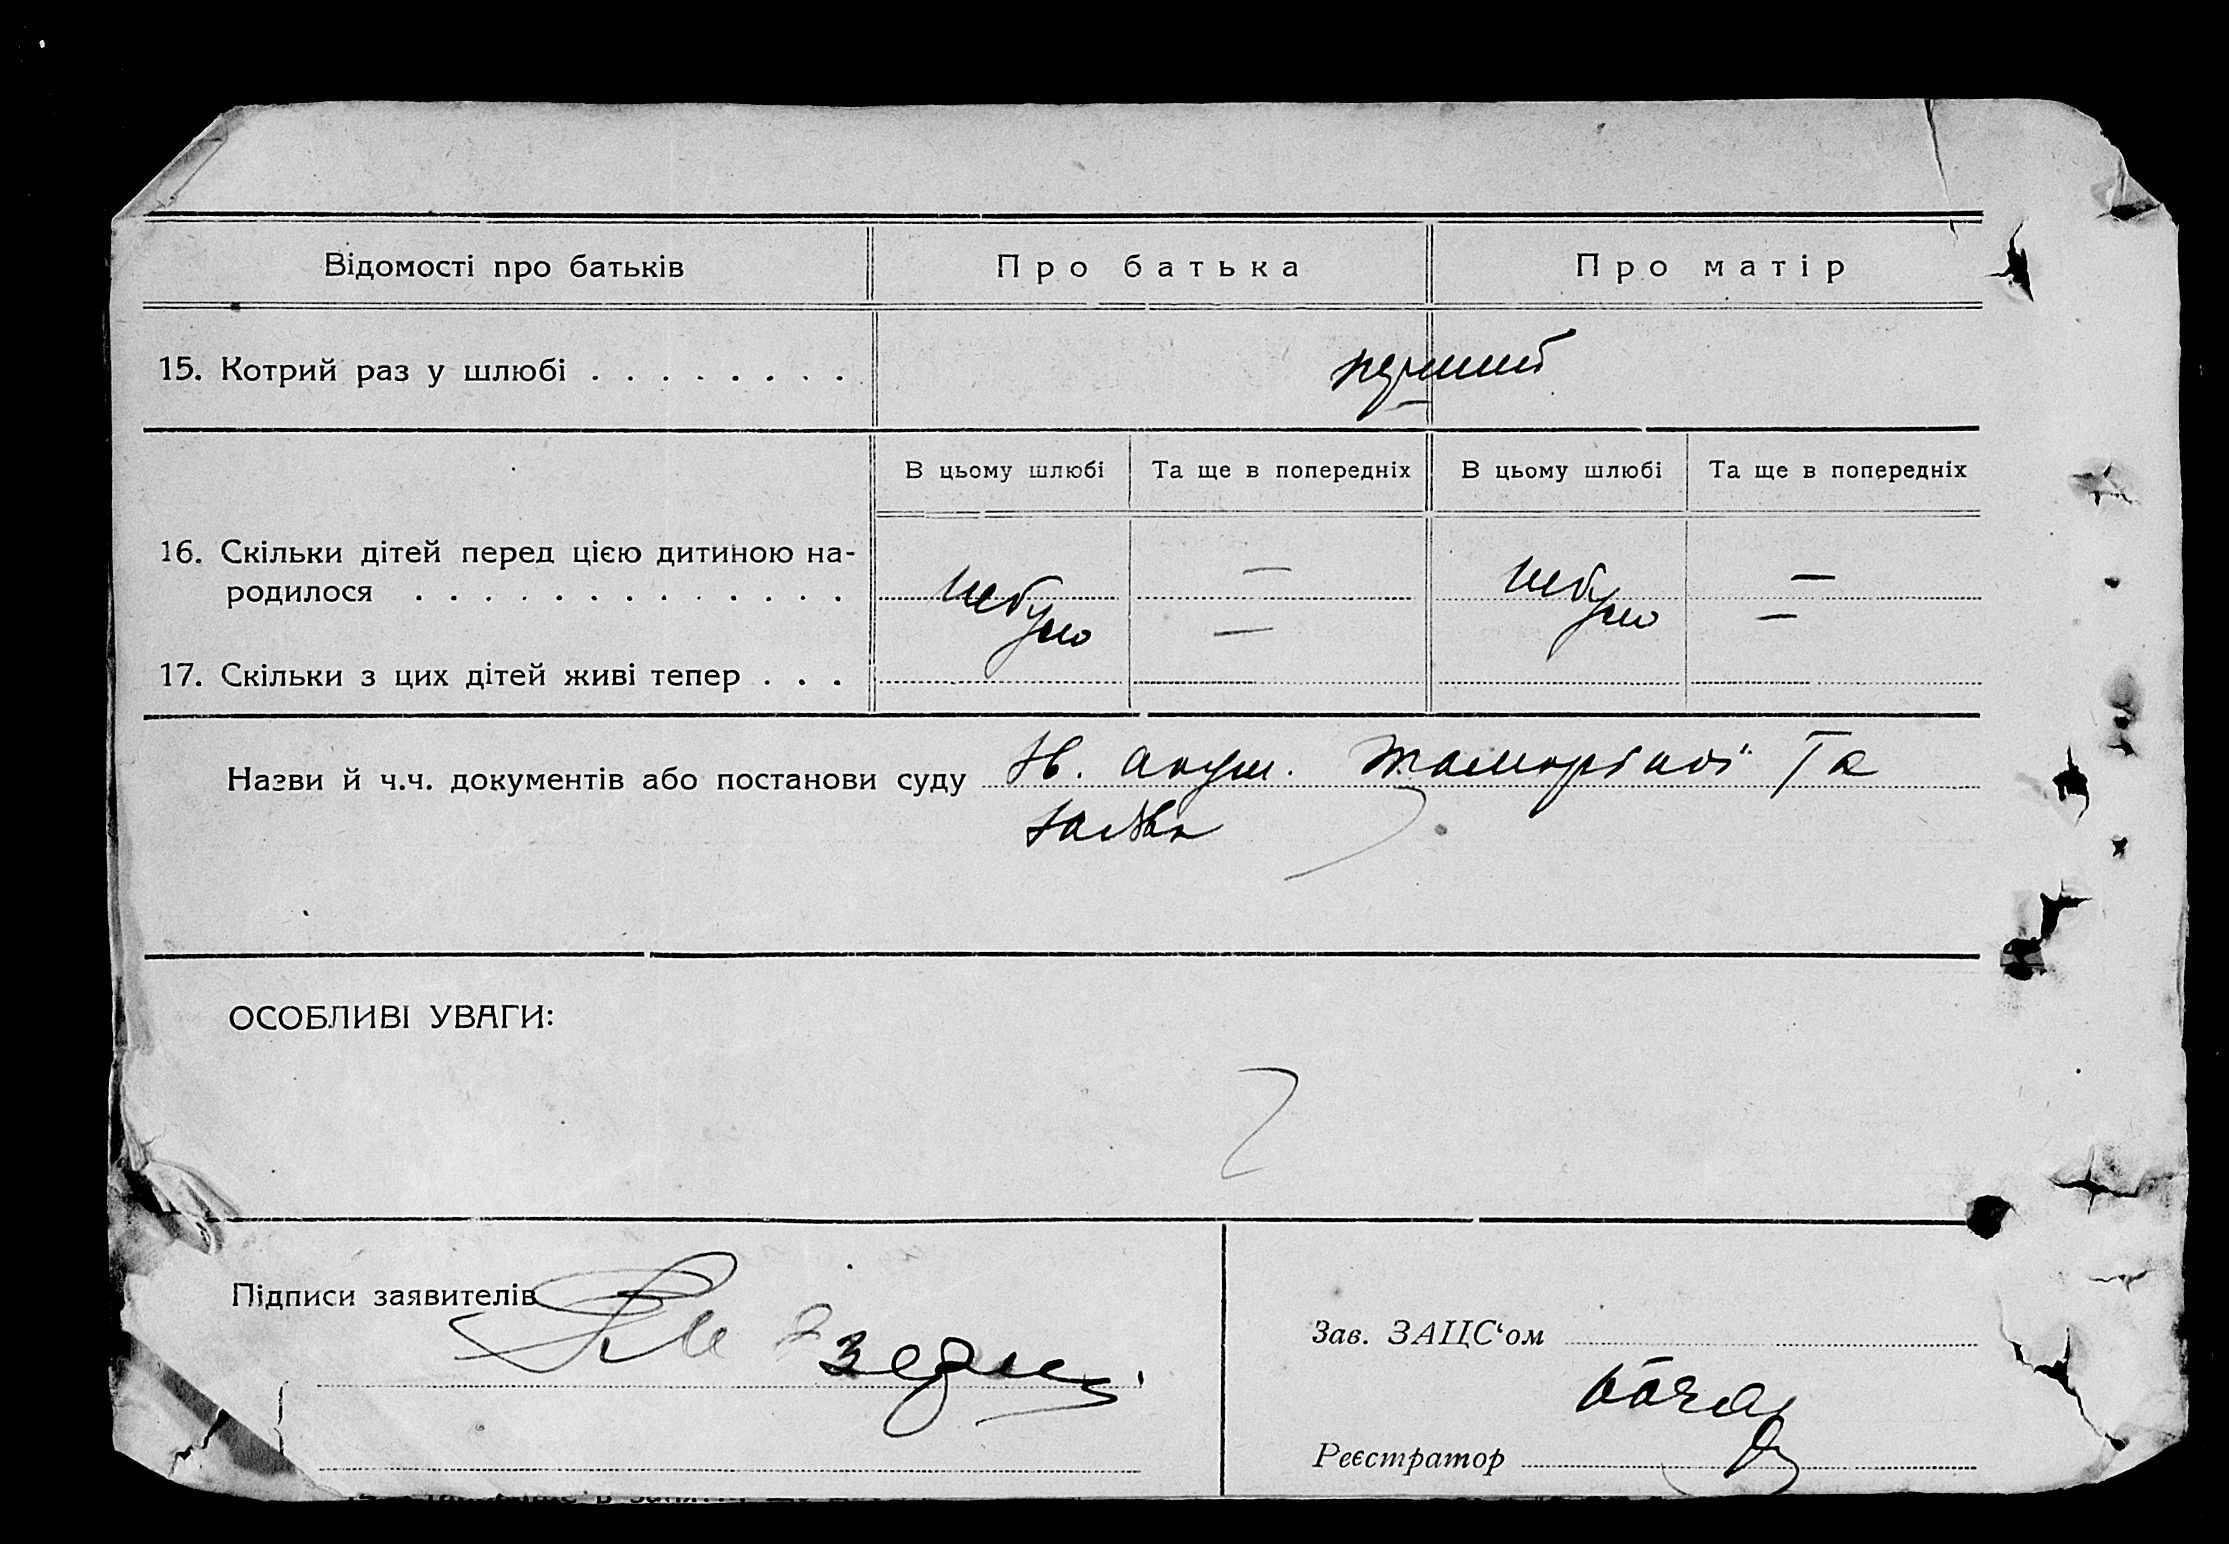 Відомості про батьків Про батька Про матір
15. Котрий раз у шлюбі . . . . . . . . перший
В цьому шлюбі Та ще в попередніх В цьому шлюбі Та ще в попередніх
16. Скільки дітей перед цією дитиною на-
родилося . . . . . . . . . . . . . небуло — небуло —
— —
17. Скільки з цих дітей живі тепер . . .
Назви й ч.ч. документів або постанови суду акуш. та
ОСОБЛИВІ УВАГИ:
Підписи заявителів
Зав. ЗАЦС‘ом
Реєстратор